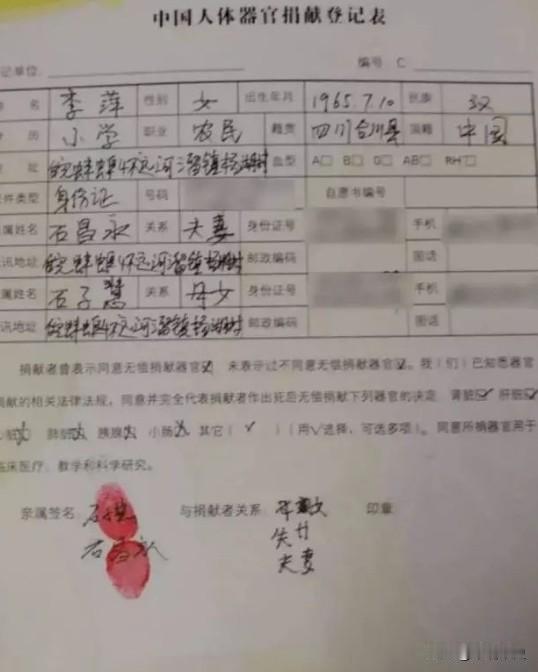 中国人体器官捐献登记表
记单位： 编号 C
名 李萍 性别 女 出生年月 1965.7.10 民族 汉
历 小学 职业 农民 籍贯 四川合川县 国籍 中国
址 皖蚌埠怀远河溜镇杨湖村 血型 A□ B□ O□ AB□ RH□
件类型 身份证 号码 自愿书编号
属姓名 石昌永 关系 夫妻 身份证号 手机
讯地址 皖蚌埠怀远河溜镇杨湖村 邮政编码 固话
属姓名 石子慧 关系 母女 身份证号 手机
讯地址 皖蚌埠怀远河溜镇杨湖村 邮政编码 固话
捐献者曾表示同意无偿捐献器官☑ 未表示过不同意无偿捐献器官☑。我（们）已知悉器官
捐献的相关法律法规，同意并完全代表捐献者作出死后无偿捐献下列器官的决定：肾脏☑ 肝脏☑
心脏 肺脏 胰腺 小肠 其它（ ✓ ）（用√选择，可选多项）。同意所捐器官用于
临床医疗、教学和科学研究。
亲属签名： 与捐献者关系： 印章：
石昌永
夫妻